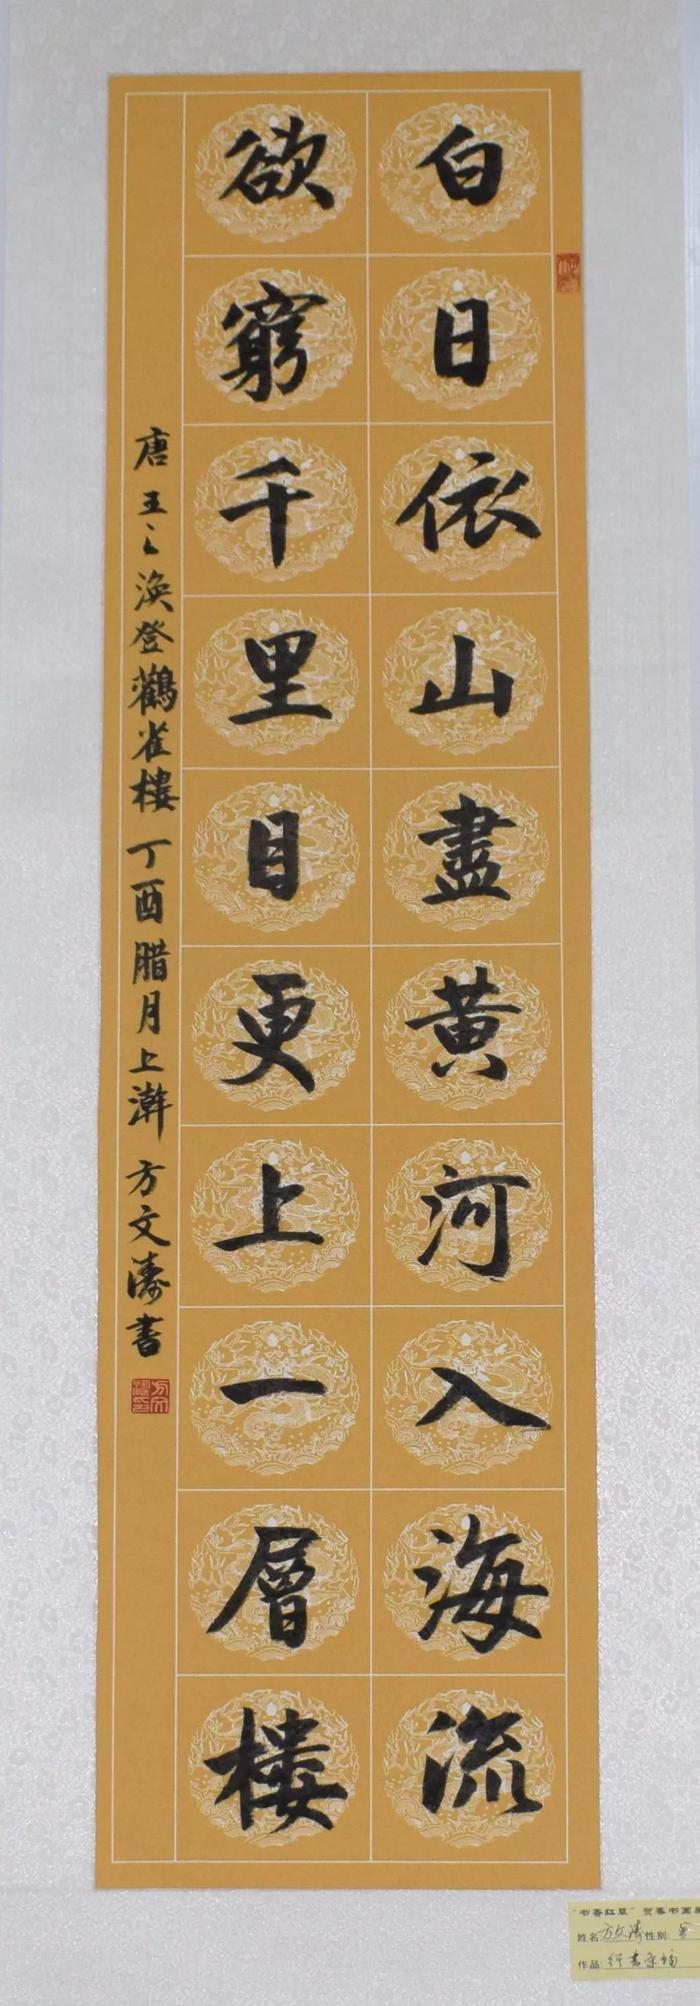 白日依山盡黃河入海流
欲窮千里目更上一層樓
唐 王之渙登鸛雀樓 丁酉腊月上澣 方文濤書
"书香红草"贺春书画展
姓名:方文涛 性别:男
作品:行书条幅